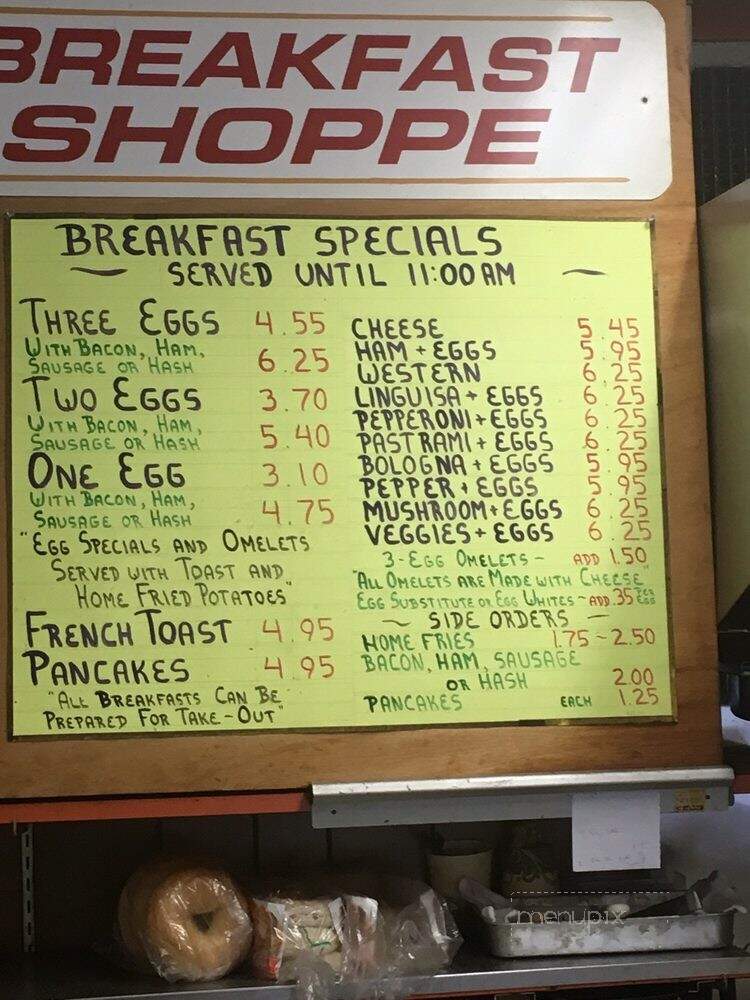 BREAKFAST
SHOPPE
BREAKFAST SPECIALS
SERVED UNTIL 11:00 AM
THREE EGGS 4.55
WITH BACON, HAM,
SAUSAGE OR HASH 6.25
TWO EGGS 3.70
WITH BACON, HAM,
SAUSAGE OR HASH 5.40
ONE EGG 3.10
WITH BACON, HAM,
SAUSAGE OR HASH 4.75
"EGG SPECIALS AND OMELETS
SERVED WITH TOAST AND
HOME FRIED POTATOES"
FRENCH TOAST 4.95
PANCAKES 4.95
"ALL BREAKFASTS CAN BE
PREPARED FOR TAKE-OUT"
CHEESE 5.45
HAM + EGGS 5.95
WESTERN 6.25
LINGUISA + EGGS 6.25
PEPPERONI + EGGS 6.25
PASTRAMI + EGGS 6.25
BOLOGNA + EGGS 5.95
PEPPER + EGGS 5.95
MUSHROOM + EGGS 6.25
VEGGIES + EGGS 6.25
3-EGG OMELETS - ADD 1.50
"ALL OMELETS ARE MADE WITH CHEESE"
EGG SUBSTITUTE OR EGG WHITES - ADD .35 PER EGG
~ SIDE ORDERS ~
HOME FRIES 1.75 - 2.50
BACON, HAM, SAUSAGE
OR HASH 2.00
PANCAKES EACH 1.25
menupix